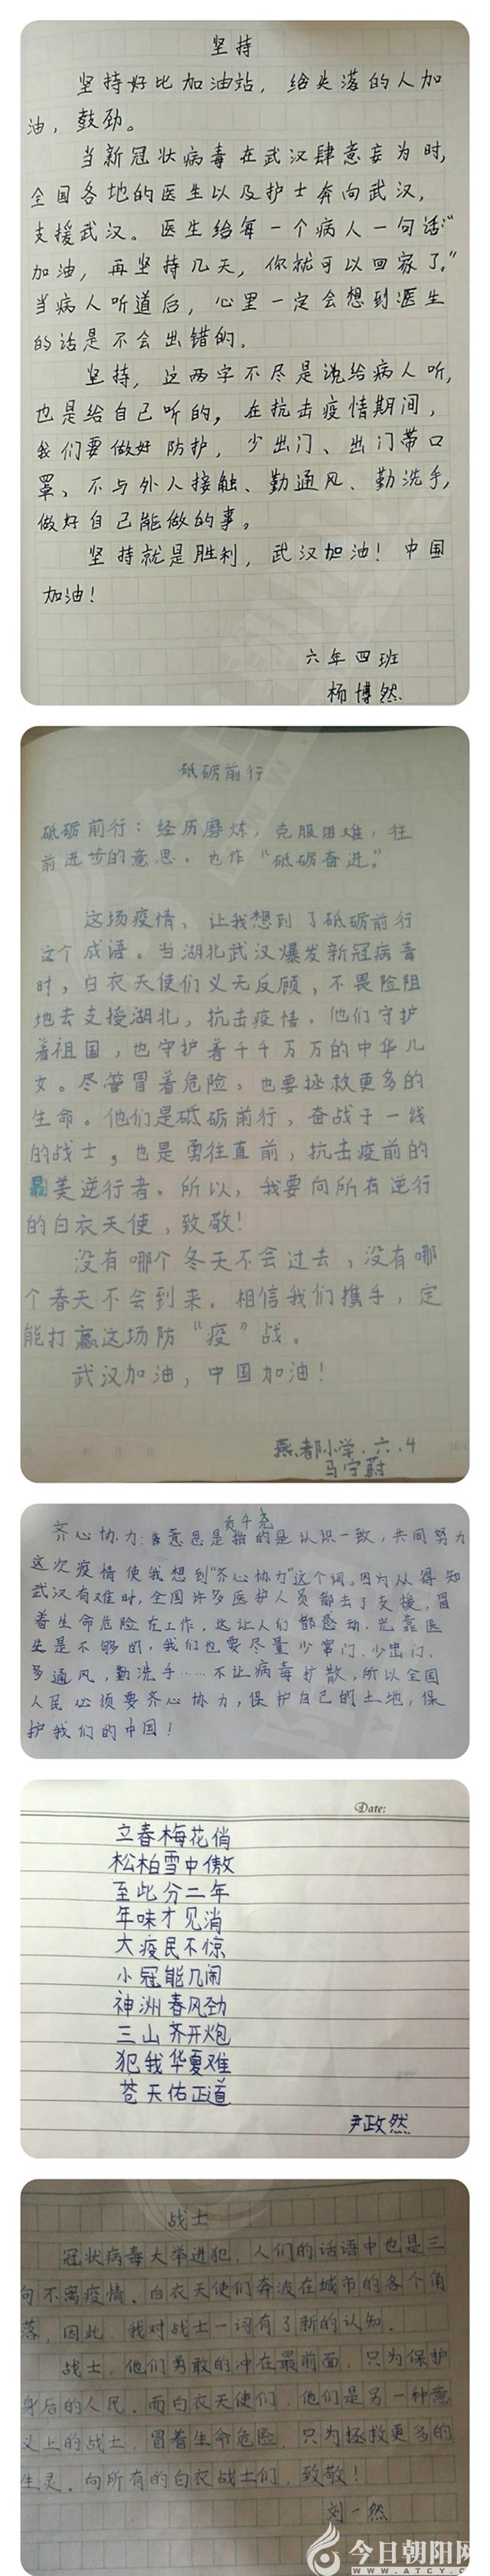 坚持
坚持好比加油站，给失落的人加
油，鼓劲。
当新冠状病毒在武汉肆意妄为时，
全国各地的医生以及护士奔向武汉，
支援武汉。医生给每一个病人一句话：“
加油，再坚持几天，你就可以回家了。”
当病人听道后，心里一定会想到医生
的话是不会出错的。
坚持，这两字不尽是说给病人听，
也是给自己听的，在抗击疫情期间，
我们要做好防护，少出门、出门带口
罩、不与外人接触、勤通风、勤洗手，
做好自己能做的事。
坚持就是胜利，武汉加油！中国
加油！
六年四班
杨博然
砥砺前行
砥砺前行：经历磨炼，克服困难，往
前进步的意思。也作“砥砺奋进”。
这场疫情，让我想到了砥砺前行
这个成语。当湖北武汉爆发新冠病毒
时，白衣天使们义无反顾，不畏险阻
地去支援湖北，抗击疫情。他们守护
着祖国，也守护着千千万万的中华儿
女。尽管冒着危险，也要拯救更多的
生命。他们是砥砺前行、奋战于一线
的战士，也是勇往直前，抗击疫前的
最美逆行者。所以，我要向所有逆行
的白衣天使，致敬！
没有哪个冬天不会过去，没有哪
个春天不会到来。相信我们携手，定
能打赢这场防“疫”战。
武汉加油，中国加油！
燕都小学·六·4
马宁蔚
齐心协力：意思是指的是认识一致，共同努力
这次疫情使我想到“齐心协力”这个词。因为从得知
武汉有难时，全国许多医护人员都去了支援，冒
着生命危险在工作，这让人们都感动。光靠医
生是不够的，我们也要尽量少窜门，少出门，
多通风，勤洗手……不让病毒扩散，所以全国
人民必须要齐心协力，保护自己的土地，保
护我们的中国！
Date:
立春梅花俏
松柏雪中傲
至此分二年
年味才见消
大疫民不惊
小冠能几闹
神洲春风劲
三山齐开炮
犯我华夏难
苍天佑正道
尹政然
战士
冠状病毒大举进犯，人们的话语中也是三
句不离疫情。白衣天使们奔波在城市的各个角
落，因此，我对战士一词有了新的认知。
战士，他们勇敢的冲在最前面，只为保护
身后的人民。而白衣天使们，他们是另一种意
义上的战士，冒着生命危险，只为拯救更多的
生灵。向所有的白衣战士们，致敬！
刘一然
今日朝阳网
WWW.ATCY.